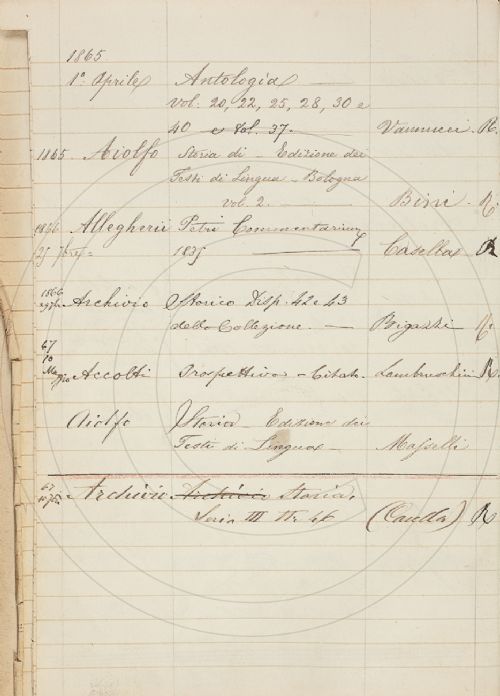 1865
1º Aprile Antologia
vol. 20, 22, 25, 28, 30 e
40 e vol. 37. Vannucci. R.
1865 Aiolfo Storia di - Edizione dei
Testi di Lingua - Bologna
vol. 2. Bini. R.
1866 Allegherii Petri Commentarium
25 7bre 1835 Casella R
1866 Archivio Storico Disp. 42 e 43
della Collezione. R.
67
10
Maggio Accolti Prospettiva - Citato. Lambruschini R.
Aiolfo Storia - Edizione dei
Testi di Lingua Masselli
67
Archivio Archivio Storico,
Serie III (Casella) R